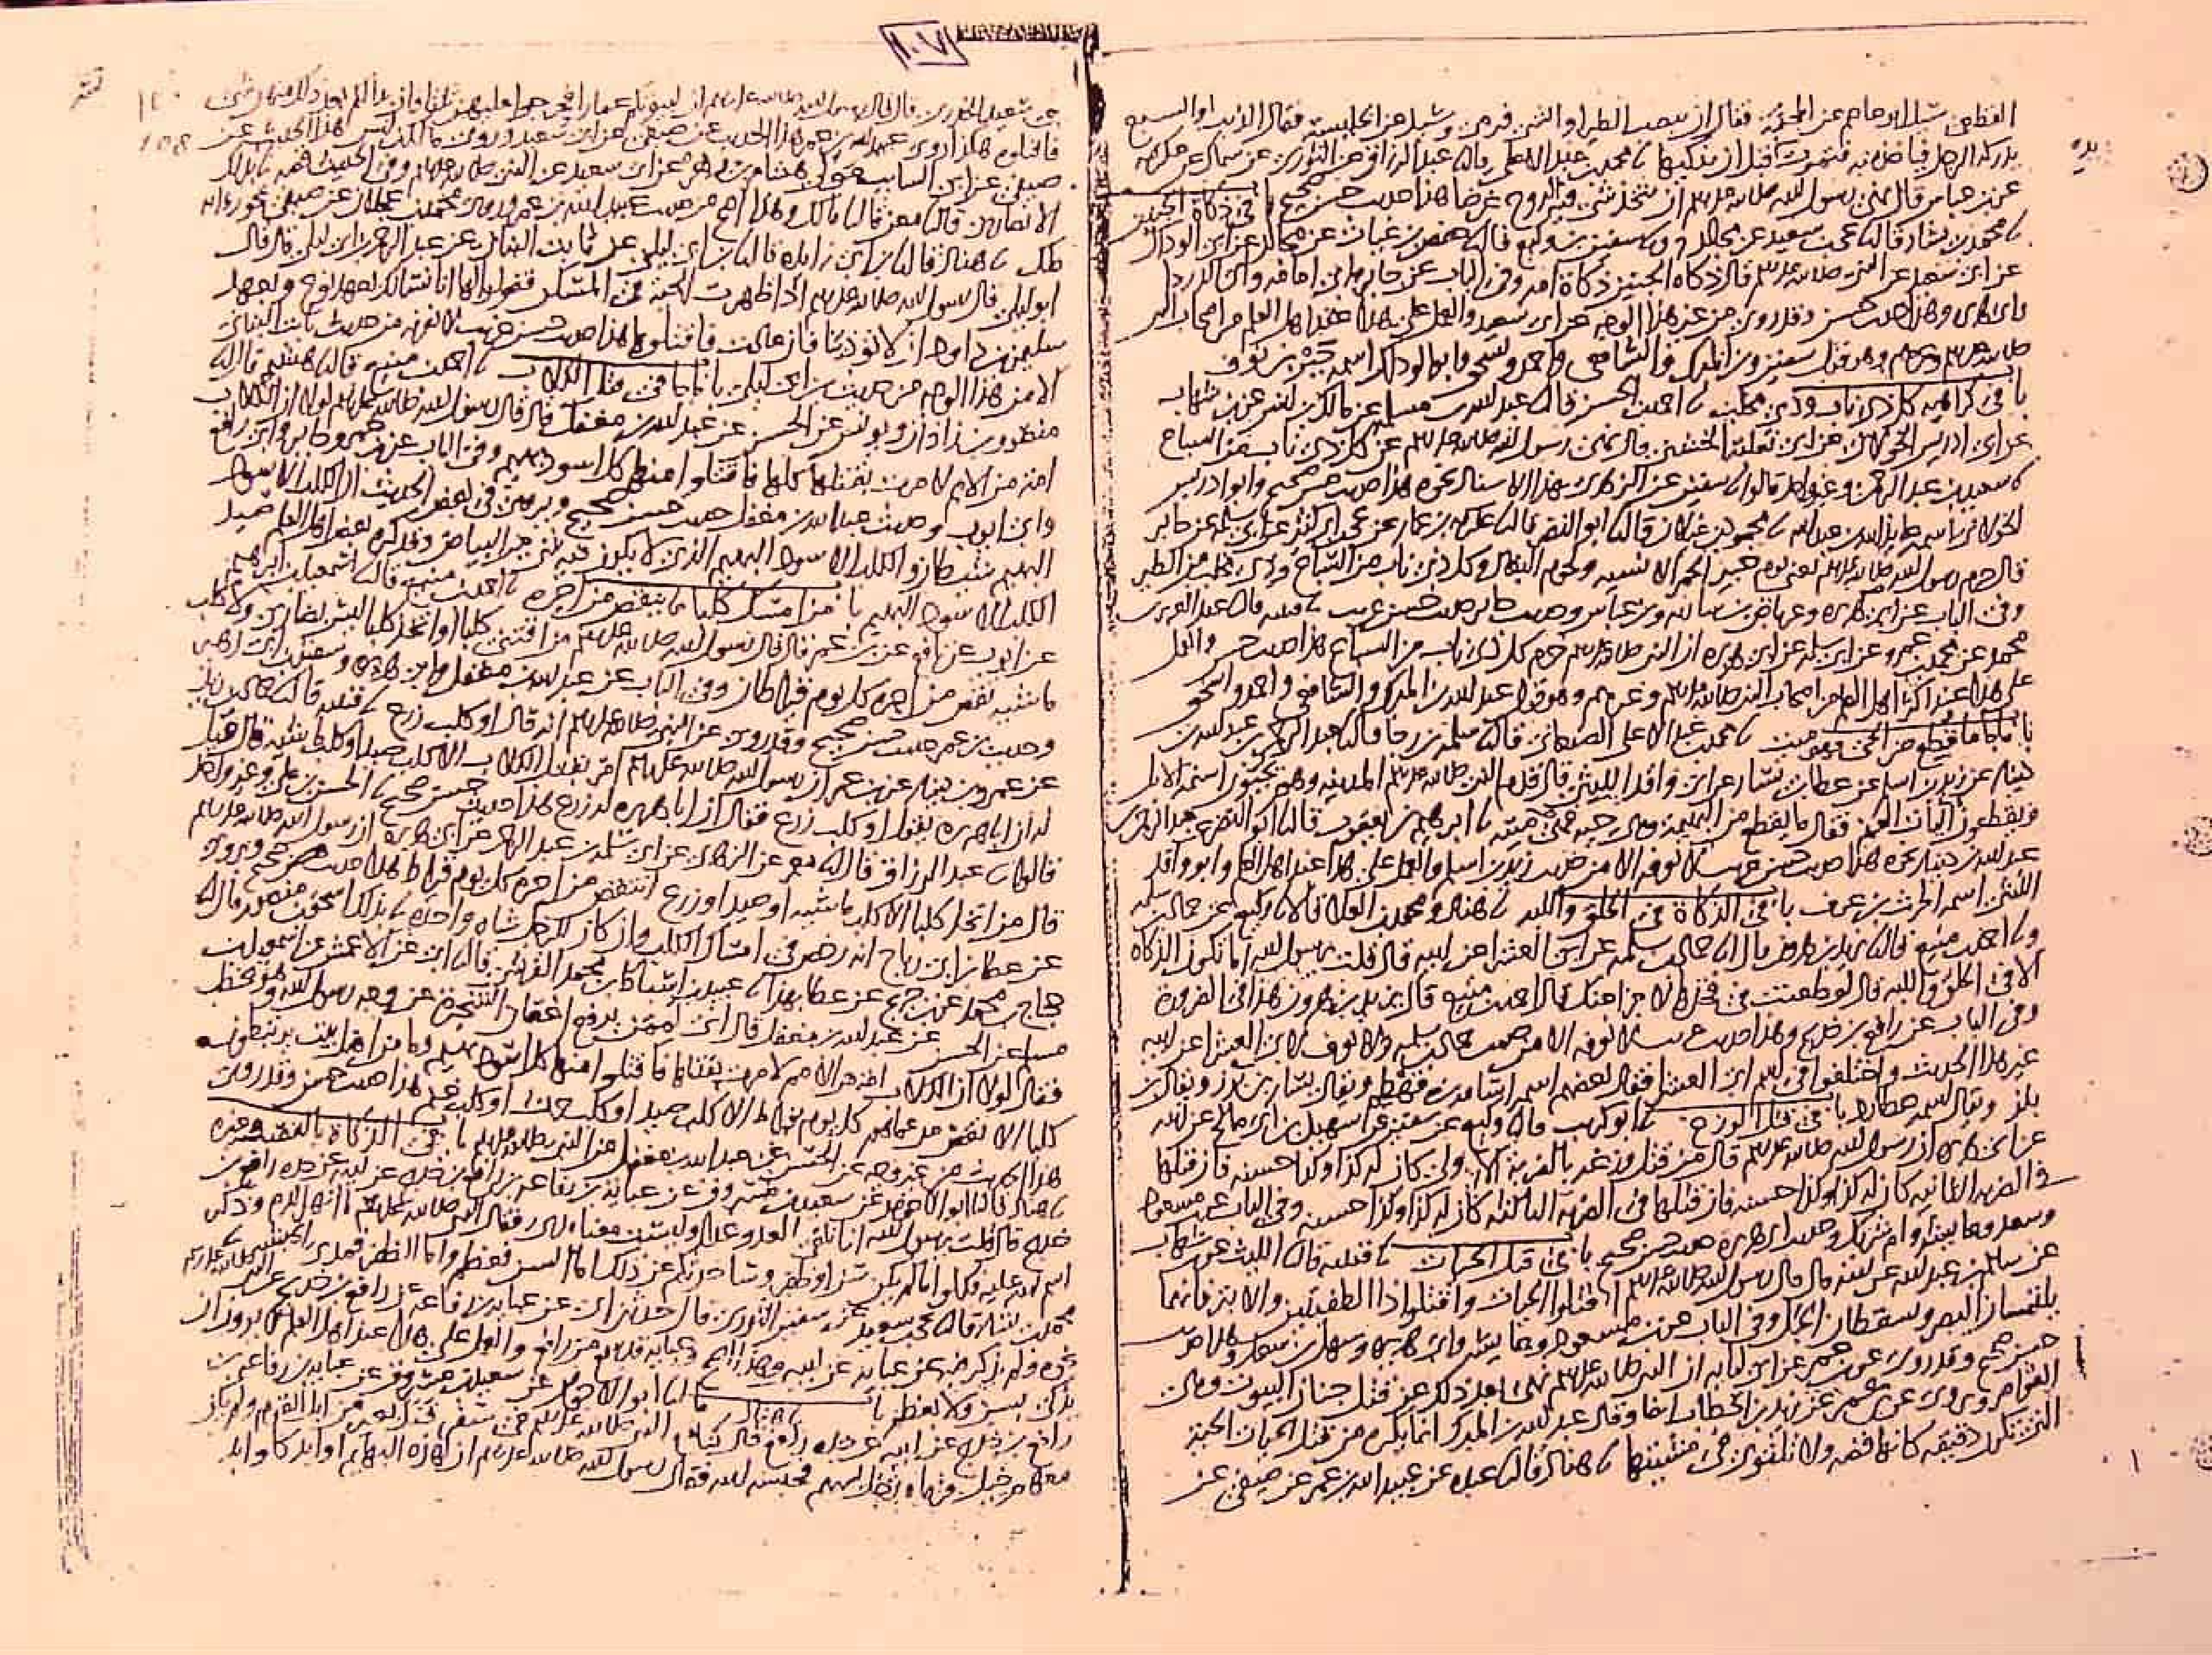 القطعي سئل ابو عاصم عن المجثمة فقال ان ينصب الطير او الشي فيرمى وسئل عن الخليسة فقال الذئب او السبع
يدركه الرجل فياخذ منه فتموت قبل ان يذكيها محمد بن عبد الاعلى قال عبد الرزاق عن الثوري عن سماك عن عكرمة
عن بن عباس قال نهى رسول الله صلى الله عليه وسلم ان يتخذ شي فيه الروح غرضا هذا حديث حسن صحيح با في ذكاة الجنين
محمد بن بشار قال يحيى بن سعيد عن مجالد وسفين بن وكيع قال حفص بن غياث عن مجالد عن ابي الوداك
عن ابي سعيد عن النبي صلى الله عليه وسلم قال ذكاة الجنين ذكاة امه وفي الباب عن جابر وابي امامة وابي الدردا
وابي هريرة وهذا حديث حسن وقد روي من غير هذا الوجه عن ابي سعيد والعمل على هذا عند اهل العلم من اصحاب النبي
صلى الله عليه وسلم وغيرهم وهو قول سفين وبن المبرك والشافعي واحمد واسحق وابو الوداك اسمه جبر بن نوف
با في كراهية كل ذي ناب وذي مخلب احمد بن الحسن قال عبد الله بن مسلمة عن مالك بن انس عن بن شهاب
عن ابي ادريس الخولاني عن ابي ثعلبة الخشني قال نهى رسول الله صلى الله عليه وسلم عن كل ذي ناب من السباع
سعيد بن عبد الرحمن وغير واحد قالوا سفين عن الزهري بهذا الاسناد نحوه هذا حديث حسن صحيح وابو ادريس
الخولاني اسمه عايذ الله بن عبد الله محمود بن غيلان قال ابو النضر قال عكرمة بن عمار عن يحيى بن ابي كثير عن ابي سلمة عن جابر
قال حرم رسول الله صلى الله عليه وسلم يعني يوم خيبر الحمر الانسية ولحوم البغال وكل ذي ناب من السباع وذي مخلب من الطير
وفي الباب عن ابي هريرة وعرباض بن سارية وبن عباس وحديث جابر حديث حسن غريب قتيبة قال عبد العزيز بن
محمد عن محمد بن عمرو عن ابي سلمة عن ابي هريرة ان النبي صلى الله عليه وسلم حرم كل ذي ناب من السباع هذا حديث حسن والعمل
على هذا عند اكثر اهل العلم من اصحاب النبي صلى الله عليه وسلم وغيرهم وهو قول عبد الله بن المبرك والشافعي واحمد واسحق
با ما جا ما قطع من الحي فهو ميت محمد بن عبد الاعلى الصنعاني قال سلمة بن رجا قال عبد الرحمن بن عبد الله بن
دينار عن زيد بن اسلم عن عطا بن يسار عن ابي واقد الليثي قال قدم النبي صلى الله عليه وسلم المدينة وهم يجبون اسنمة الابل
ويقطعون اليات الغنم فقال ما يقطع من البهيمة وهي حية فهي ميتة ابرهيم بن يعقوب قال ابو النضر عن عبد الرحمن بن
عبد الله بن دينار نحوه هذا حديث حسن غريب لا نعرفه الا من حديث زيد بن اسلم والعمل على هذا عند اهل العلم وابو واقد
الليثي اسمه الحرث بن عوف با في الذكاة في الحلق واللبة هناد ومحمد بن العلا قالا وكيع عن حماد بن سلمة
و احمد بن منيع قال يزيد بن هرون قال حماد بن سلمة عن ابي العشرا عن ابيه قال قلت يرسول الله اما تكون الذكاة
الا في الحلق واللبة قال لو طعنت في فخذها لاجزا عنك قال احمد بن منيع قال يزيد بن هرون هذا في الضرورة
وفي الباب عن رافع بن خديج وهذا حديث غريب لا نعرفه الا من حديث حماد بن سلمة ولا نعرف لابي العشرا عن ابيه
غير هذا الحديث واختلفوا في اسم ابي العشرا فقال بعضهم اسمه اسامة بن قهطم ويقال يسار بن برز ويقال بن
بلز ويقال اسمه عطارد با في قتل الوزغ ابو كريب قال وكيع عن سفين عن سهيل بن ابي صالح عن ابيه
عن ابي هريرة ان رسول الله صلى الله عليه وسلم قال من قتل وزغة بالضربة الاولى كان له كذا وكذا حسنة فان قتلها
في الضربة الثانية كان له كذا وكذا حسنة فان قتلها في الضربة الثالثة كان له كذا وكذا حسنة وفي الباب عن بن مسعود
وسعد وعايشة وام شريك وحديث ابي هريرة حديث حسن صحيح با في قتل الحيات قتيبة قال الليث عن بن شهاب
عن سالم بن عبد الله عن ابيه قال قال رسول الله صلى الله عليه وسلم اقتلوا الحيات واقتلوا ذا الطفيتين والابتر فانهما
يلتمسان البصر ويسقطان الحبل وفي الباب عن بن مسعود وعايشة وابي هريرة وسهل بن سعد وهذا حديث
حسن صحيح وقد روي عن بن عمر عن ابي لبابة ان النبي صلى الله عليه وسلم نهى بعد ذلك عن قتل جنان البيوت وهي
العوامر ويروى عن بن عمر عن زيد بن الخطاب ايضا وقال عبد الله بن المبرك انما يكره من قتل الحيات الحية
التي تكون دقيقة كانها فضة ولا تلتوي في مشيتها هناد قال عبدة عن عبيد الله بن عمر عن صيفي عن
ابي سعيد الخدري قال قال رسول الله صلى الله عليه وسلم ان لبيوتكم عمارا فحرجوا عليهن ثلثا فان بدا لكم بعد ذلك منهن شي
فاقتلوه هكذا روى عبيد الله بن عمر هذا الحديث عن صيفي عن ابي سعيد وروى مالك بن انس هذا الحديث عن
صيفي عن ابي السايب مولى هشام بن زهرة عن ابي سعيد عن النبي صلى الله عليه وسلم وفي الحديث قصة بذلك
الانصاري قال معن قال مالك وهذا اصح من حديث عبيد الله بن عمر وروى محمد بن عجلان عن صيفي نحو رواية
ملك هناد قال بن ابي زايدة قال بن ابي ليلى عن ثابت البناني عن عبد الرحمن بن ابي ليلى قال قال
ابو ليلى قال رسول الله صلى الله عليه وسلم اذا ظهرت الحية في المسكن فقولوا لها انا نسالك بعهد نوح وبعهد
سليمن بن داود ان لا توذينا فان عادت فاقتلوها هذا حديث حسن غريب لا نعرفه من حديث ثابت البناني
الا من هذا الوجه من حديث بن ابي ليلى با ما جا في قتل الكلاب احمد بن منيع قال هشيم قال
منصور بن زاذان ويونس عن الحسن عن عبد الله بن مغفل قال قال رسول الله صلى الله عليه وسلم لولا ان الكلاب
امة من الامم لامرت بقتلها كلها فاقتلوا منها كل اسود بهيم وفي الباب عن بن عمر وجابر وابي رافع
وابي ايوب وحديث عبد الله بن مغفل حديث حسن صحيح ويروى في بعض الحديث ان الكلب الاسود
البهيم شيطان والكلب الاسود البهيم الذي لا يكون فيه شي من البياض وقد كره بعض اهل العلم صيد
الكلب الاسود البهيم با من امسك كلبا ما ينقص من اجره احمد بن منيع قال اسمعيل بن ابرهيم
عن ايوب عن نافع عن بن عمر قال قال رسول الله صلى الله عليه وسلم من اقتنى كلبا او اتخذ كلبا ليس بضاري ولا كلب
ماشية نقص من اجره كل يوم قيراطان وفي الباب عن عبد الله بن مغفل وابي هريرة وسفين بن ابي زهير
وحديث بن عمر حديث حسن صحيح وقد روي عن النبي صلى الله عليه وسلم انه قال او كلب زرع قتيبة قال حماد بن زيد
عن عمرو بن دينار عن بن عمر ان رسول الله صلى الله عليه وسلم امر بقتل الكلاب الا كلب صيد او كلب ماشية قال قيل
له ان ابا هريرة يقول او كلب زرع فقال ان ابا هريرة له زرع هذا حديث حسن صحيح الحسن بن علي وغير واحد
قالوا عبد الرزاق قال معمر عن الزهري عن ابي سلمة بن عبد الرحمن عن ابي هريرة ان رسول الله صلى الله عليه وسلم
قال من اتخذ كلبا الا كلب ماشية او صيد او زرع انتقص من اجره كل يوم قيراط هذا حديث حسن صحيح ويروى
عن عطا بن ابي رباح انه رخص في امساك الكلب وان كان للرجل شاة واحدة بذلك اسحق بن منصور قال
حجاج بن محمد عن بن جريج عن عطا بهذا عبيد بن اسباط بن محمد القرشي قال ابي عن الاعمش عن اسمعيل بن
مسلم عن الحسن عن عبد الله بن مغفل قال اني لممن يرفع اغصان الشجرة عن وجه رسول الله وهو يخطب
فقال لولا ان الكلاب امة من الامم لامرت بقتلها فاقتلوا منها كل اسود بهيم وما من اهل بيت يرتبطون
كلبا الا نقص من عملهم كل يوم قيراط الا كلب صيد او كلب حرث او كلب غنم هذا حديث حسن وقد روي
هذا الحديث من غير وجه عن الحسن عن عبد الله بن مغفل عن النبي صلى الله عليه وسلم با في الذكاة بالقصب وغيره
هناد قال ابو الاحوص عن سعيد بن مسروق عن عباية بن رفاعة بن رافع بن خديج عن ابيه عن جده رافع بن
خديج قال قلت يرسول الله انا نلقى العدو غدا وليست معنا مدى فقال النبي صلى الله عليه وسلم ما انهر الدم وذكر
اسم الله عليه فكلوا ما لم يكن سن او ظفر وساحدثكم عن ذلك اما السن فعظم واما الظفر فمدى الحبشة
محمد بن بشار قال يحيى بن سعيد عن سفين الثوري قال حدثني ابي عن عباية بن رفاعة عن رافع بن خديج عن النبي صلى الله عليه وسلم
نحوه ولم يذكر فيه عن عباية عن ابيه وهذا اصح وعباية قد سمع من رافع والعمل على هذا عند اهل العلم لا يرون ان
يذكى بسن ولا بعظم با هناد قال ابو الاحوص عن سعيد بن مسروق عن عباية بن رفاعة بن
رافع بن خديج عن ابيه عن جده رافع قال كنا مع النبي صلى الله عليه وسلم في سفر فند بعير من ابل القوم ولم يكن
معهم خيل فرماه رجل بسهم فحبسه الله فقال رسول الله صلى الله عليه وسلم ان لهذه البهايم اوابد كاوابد